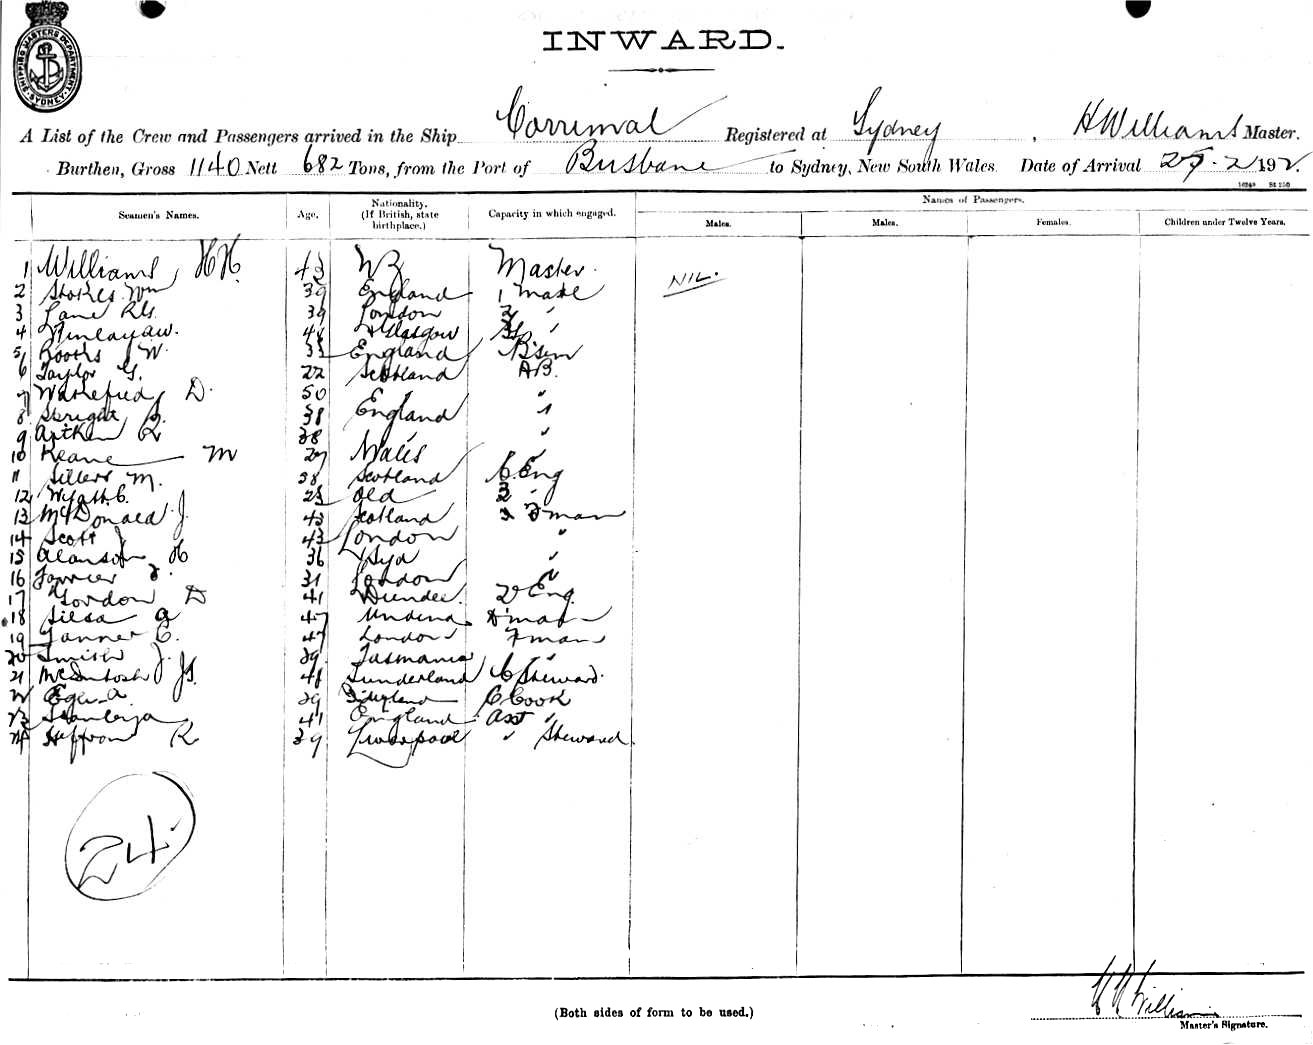 SHIPPING MASTERS DEPARTMENT. SYDNEY.
INWARD.
A List of the Crew and Passengers arrived in the Ship Corrimal Registered at Sydney, H Williams Master.
Burthen, Gross 1140 Nett 682 Tons, from the Port of Brisbane to Sydney, New South Wales. Date of Arrival 25.2 192
Seamen's Names. Age. Nationality. (If British, state birthplace.) Capacity in which engaged. Names of Passengers.
Males. Males. Females. Children under Twelve Years.
1 Williams, H H 43 NZ Master. NIL.
2 Stokes Wm 39 England 1 mate
3 Lane 39 London 2 "
4 Finlay aw. Glasgow
5 Booths W. 33 England B'sm
6 Taylor G. 22 Scotland AB.
7 Wakefield D. 50 " "
8 38 England "
9 Aitken R 28 " "
10 Keane M 27 Wales "
11 Sillers M. 38 Scotland C. Eng
12 Wyatt C. Qld 2 "
13 McDonald J 43 Scotland 3 Fman
14 Scott J 43 London "
15 H 36 Syd "
16 31 London "
17 Gordon D 41 Dundee 2 Eng
18 Silsa G 47
19 Tanner C. 47 London Fman
20 Smith J. 39 Tasmania "
21 McIntosh Js. 48 Sunderland C Steward
22 A 29 C Cook
23 41 England Asst "
24 Heffron R 39 Liverpool " Steward
24.
H H Williams
(Both sides of form to be used.)
Master's Signature.